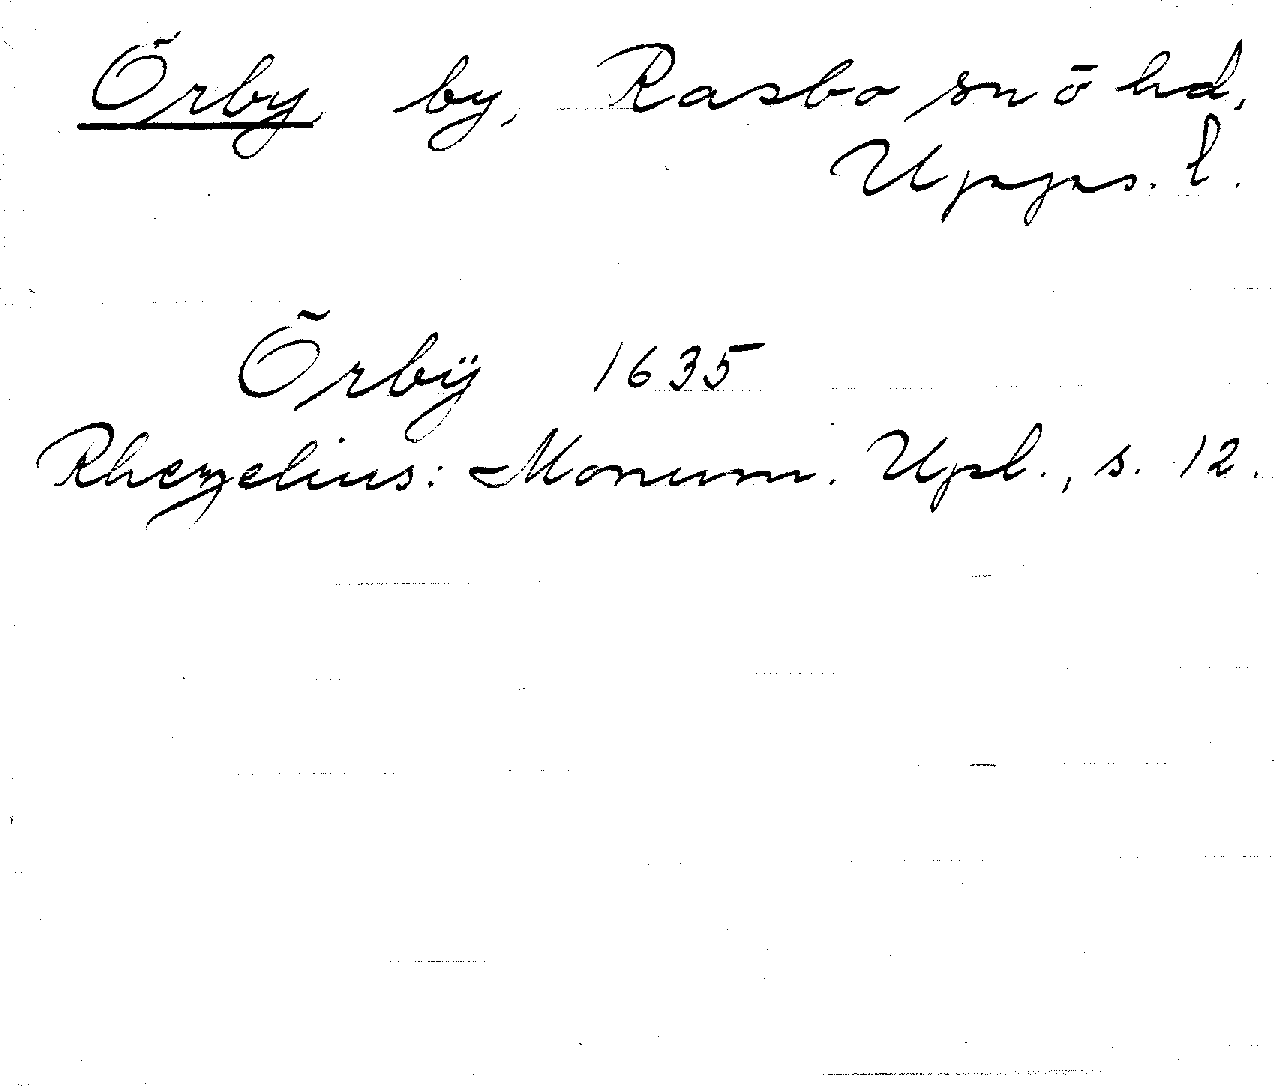 Örby by, Rasbo sn ō hd,
Upps. l.
Örbÿ 1635
Rhezelius: Monum. Upl., s. 12.